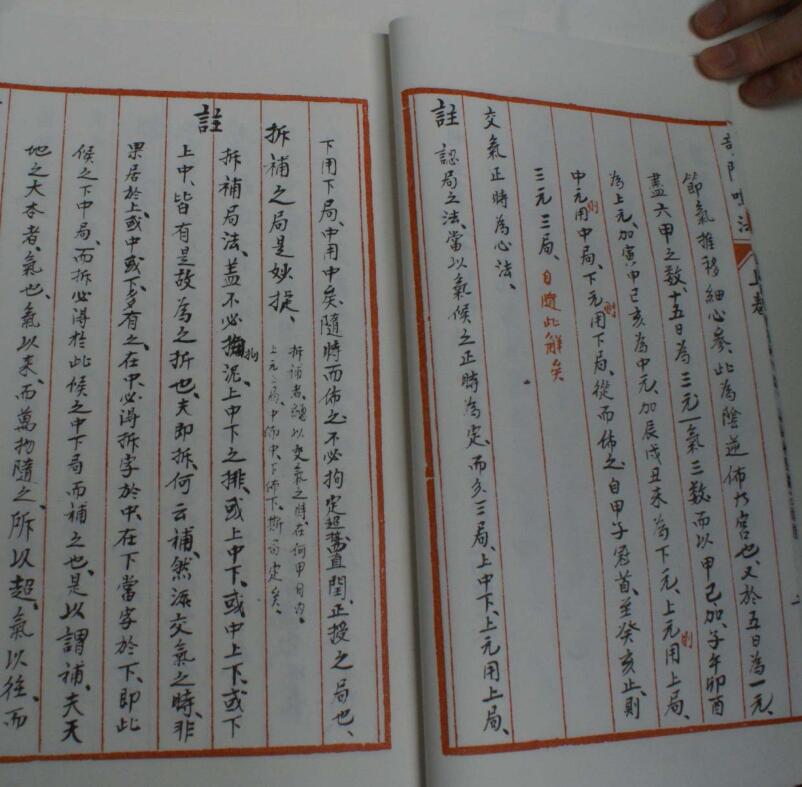 上卷
節氣推移細心參此為陰逆佈九宮也、又於五日為一元、
盡六甲之數、十五日為三元、一氣三數、而以甲己加子午卯酉
為上元、加寅申巳亥為中元、加辰戌丑未為下元、上元則用上局、
中元則用中局、下元則用下局、從而佈之、自甲子冠首、至癸亥止、則
三元三局、自隨此解矣
交氣正時為心法、
註 認局之法、當以氣候之正時為定、而分三局、上中下、上元用上局、
下用下局、中用中矣、隨時而佈之、不必拘定超舊直閏、正授之局也、
拆補之局是妙提
拆補者、總以交氣之時、在何甲日內、
上元上局、中佈中、下佈下、斯局定矣、
註
拆補局法、蓋不必拘泥、上中下之排、或上中下、或中上下、或下
上中、皆有是故為之拆也、夫即拆、何云補、然派交氣之時、非
果居於上、或中或下、多有之、在中必得拆字於中、在下當字於下、即此
候之下中局、而拆必得於此候之中下局而補之也、是以謂補、夫天
地之大本者、氣也、氣以來、而萬物隨之、所以超、氣以往、而